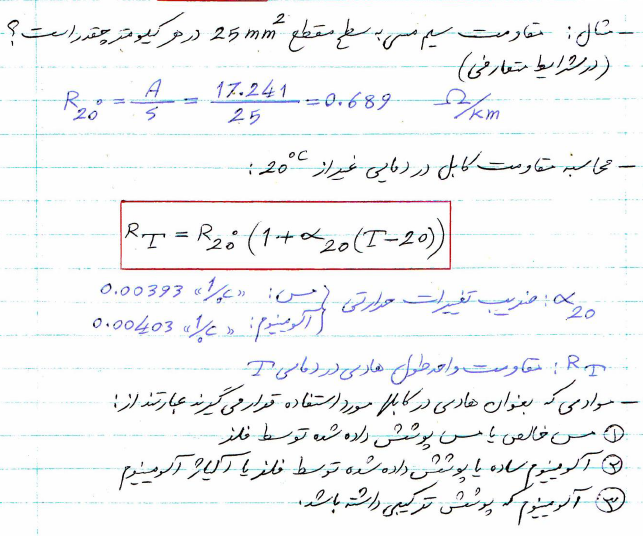 - مثال: مقاومت سیم مسی به سطح مقطع 25 mm² در هر کیلومتر چقدر است؟
(در شرایط متعارفی)
R20° = A/S = 17.241/25 = 0.689 Ω/km
- محاسبه مقاومت کابل در دمایی غیر از 20°C :
RT = R20° (1 + α20 (T - 20))
α20 : ضریب تغییرات حرارتی { مس: «1/°C» 0.00393
آلومینیوم: «1/°C» 0.00403
RT : مقاومت واحد طول هادی در دمای T
- موادی که بعنوان هادی در کابلها مورد استفاده قرار می گیرند عبارتند از:
① مس خالص یا مس پوشش داده شده توسط فلز
② آلومینیوم ساده یا پوشش داده شده توسط فلز یا آلیاژ آلومینیوم
③ آلومینیوم که پوشش ترکیبی داشته باشد.